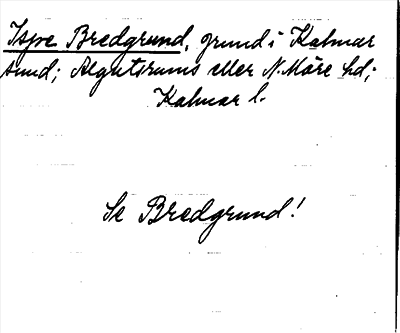 Ispe Bredgrund, grund i Kalmar
sund; Algutsrums eller N. Möre hd;
Kalmar l.
Se Bredgrund!